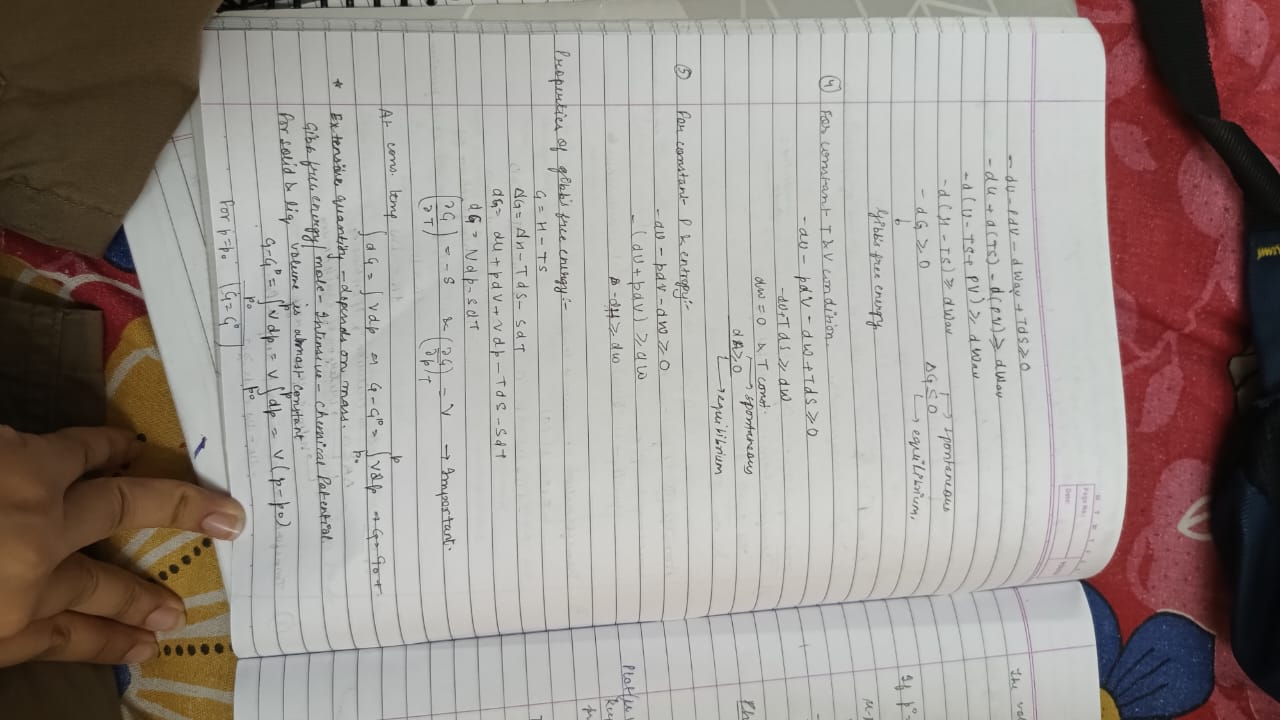 Page No.
Date
-dU - PdV - dWav + TdS ≥ 0
-dU + d(TS) - d(PV) ≥ dWav
-d(U - TS + PV) ≥ dWav
-d(H - TS) ≥ dWav → spontaneous
-dG ≥ 0 ΔG ≤ 0 → equilibrium,
Gibbs free energy
④ For constant T & V condition.
-dU - pdV - dW + TdS ≥ 0
-dU + TdS ≥ dW
dW = 0 & T const.
→ spontaneous
dA ≥ 0
→ equilibrium
⑤ For constant P & entropy:-
-dU - pdV - dW ≥ 0
-(dU + pdV) ≥ dW
-dH ≥ dW
Properties of gibb's free energy:-
G = H - TS
ΔG = ΔH - TdS - SdT
dG = dU + pdV + Vdp - TdS - SdT
dG = Vdp - SdT
(∂G/∂T) = -S & (∂G/∂p)T = V → Important.
At cons. temp ∫dG = ∫Vdp or G - G° = ∫Vdp → G = G0 +
p
p0
* Extensive quantity - depends on mass.
Gibbs free energy/mole - Intensive - chemical Potential
For solid & liq volume is almost constant.
G - G° = ∫Vdp = V∫dp = V(p - p0)
p p
p0 p0
For p = p0 G = G°
The
If p° =
Ph